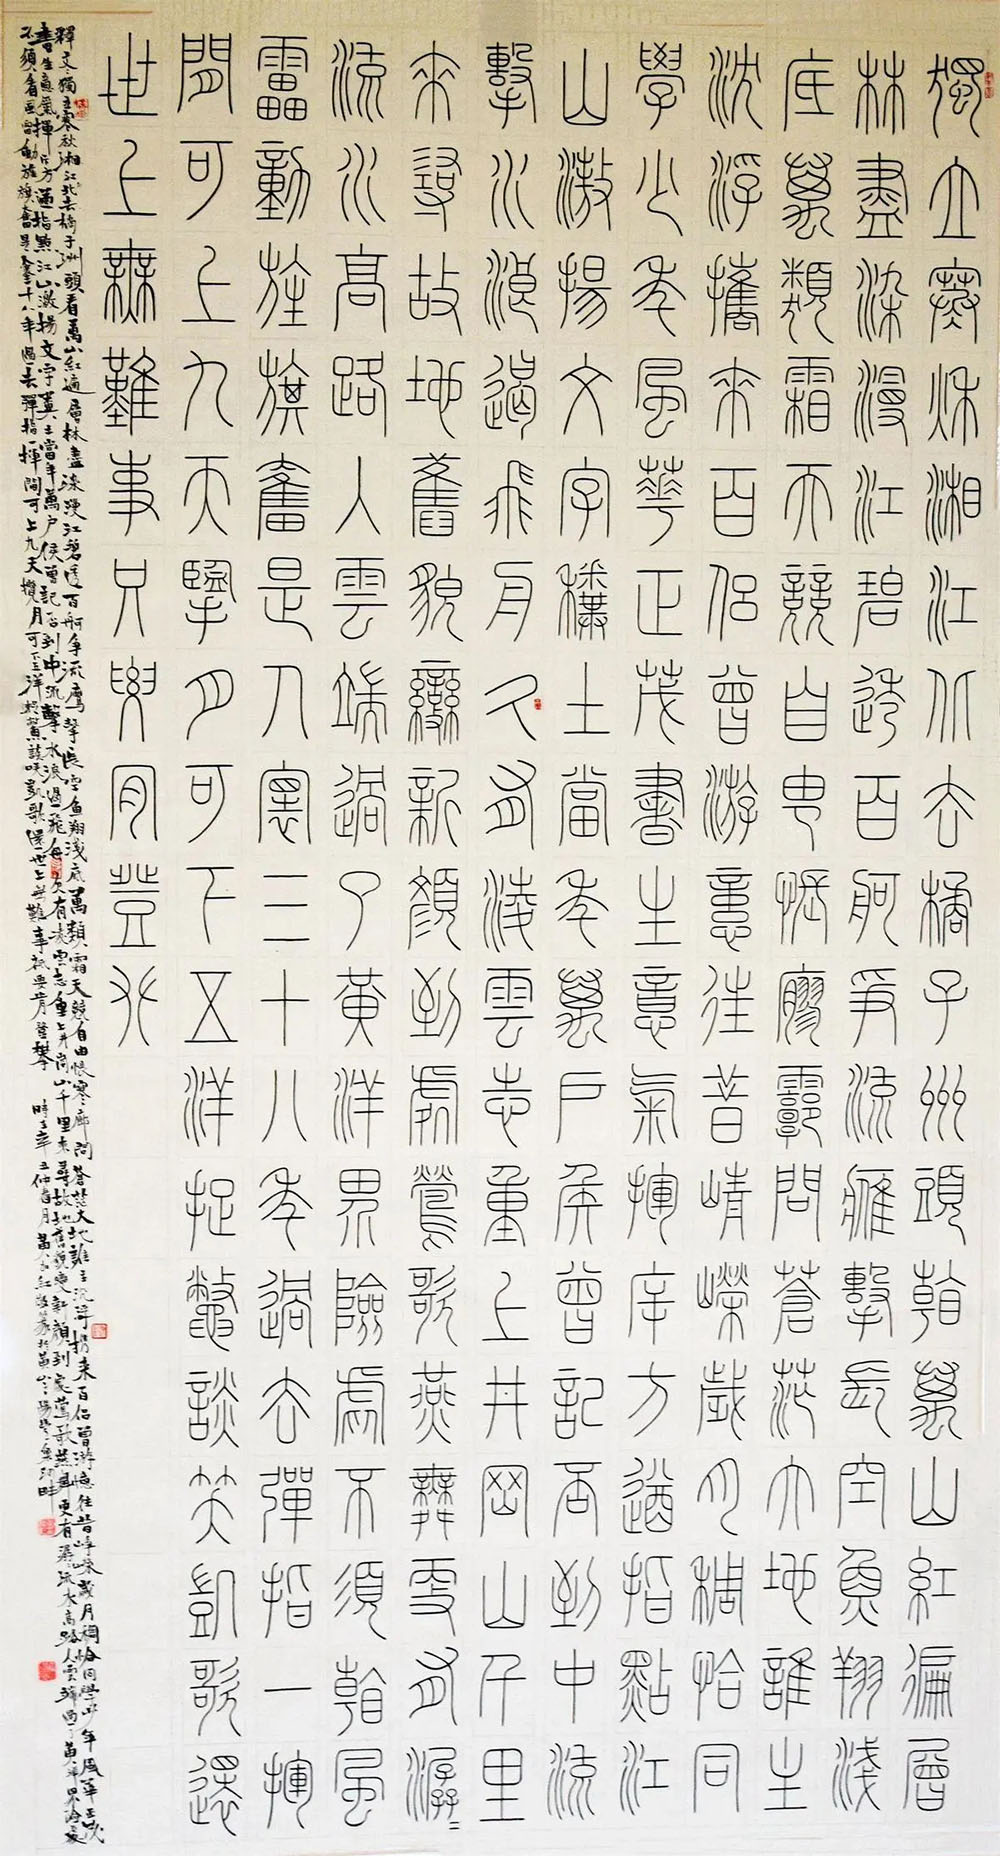 獨立寒秋湘江北去橘子州頭看萬山紅遍層
林盡染漫江碧透百舸爭流雁擊長空魚翔淺
底萬類霜天競自由悵廖廓問蒼茫大地誰主
沈浮攜來百侶曾游憶往昔崢嶸歲月稠恰同
學少年風華正茂書生意氣揮斥方遒指點江
山激揚文字糞土當年萬戶侯曾記否到中流
擊水浪遏飛舟久有淩雲志重上井岡山千里
來尋故地舊貌變新顏到處鶯歌燕舞更有潺〻
流水高路入雲端過了黃洋界險處不須看風
雷動旌旗奮是人寰三十八年過去彈指一揮
間可上九天擥月可下五洋捉鱉談笑凱歌還
世上無難事只要肯登攀
釋文獨立寒秋湘江北去橘子洲頭看萬山紅遍層林盡染漫江碧透百舸爭流鷹擊長空魚翔淺底萬類霜天競自由悵寥廓問蒼茫大地誰主沉浮攜來百侶曾游憶往昔崢嶸歲月稠恰同學少年風華正茂
書生意氣揮斥方遒指點江山激揚文字糞土當年萬戶侯曾記否到中流擊水浪遏飛舟久有凌雲志重上井岡山千里來尋故地舊貌變新顏到處鶯歌燕舞更有潺潺流水高路入雲端過了黃洋界險處
不須看風雷動旌旗奮是人寰三十八年過去彈指一揮間可上九天攬月可下五洋捉鱉談笑凱歌還世上無難事衹要肯登攀時在辛丑仲春月